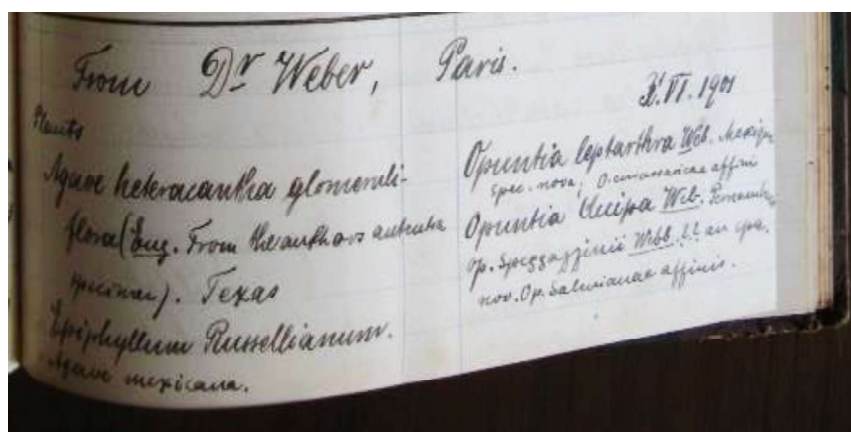 From Dr Weber, Paris.
VI. 1901
Plants
Agave heteracantha glomeruli-
flora (Eng. From the authors autentic
specimen). Texas
Epiphyllum Russellianum.
Agave mexicana.
Opuntia leptarthra Web.
spec. nova; affini
Opuntia Web.
Op. Spegazzinii Webb. !! an spec.
nov. Op. Salmianae affinis.